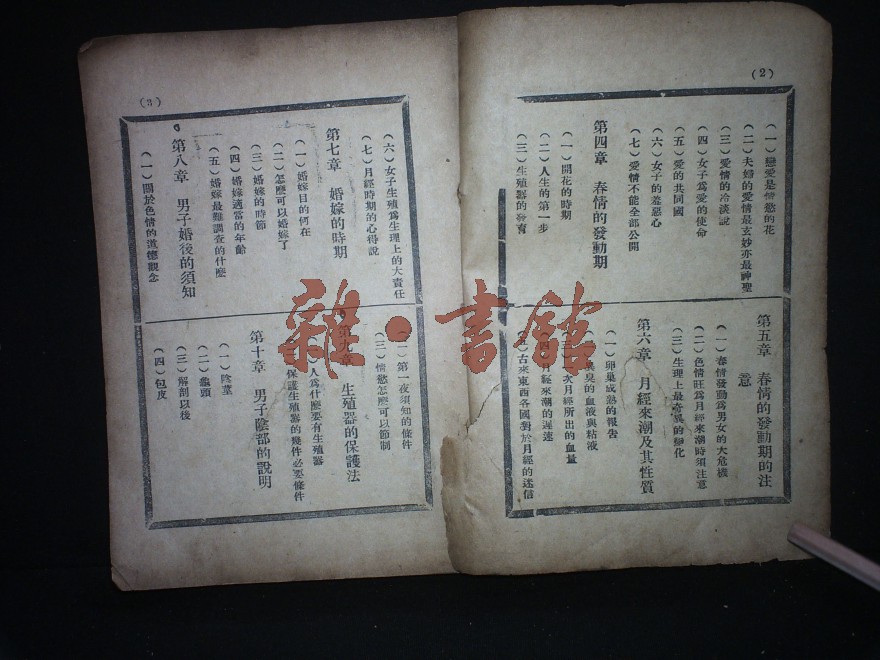 (2)
(一)戀愛是情慾的花
(二)夫婦的愛情最玄妙亦最神聖
(三)愛情的冷淡說
(四)女子爲愛的使命
(五)愛的共同國
(六)女子的羞惡心
(七)愛情不能全部公開
第四章 春情的發動期
(一)開花的時期
(二)人生的第一步
(三)生殖器的發育
第五章 春情的發動期的注
意
(一)春情發動爲男女的大危機
(二)色情旺爲月經來潮時須注意
(三)生理上最奇異的變化
第六章 月經來潮及其性質
(一)卵巢成熟的報告
臭的血液與粘液
次月經所出的血量
月經來潮的遲速
古來東西各國對於月經的迷信
(3)
(六)女子生殖爲生理上的大責任
(七)月經時期的心得說
第七章 婚嫁的時期
(一)婚嫁目的何在
(二)怎麼可以婚嫁了
(三)婚嫁的時節
(四)婚嫁適當的年齡
(五)婚嫁最難調查的什麼
第八章 男子婚後的須知
(一)關於色情的道德觀念
(二)第一夜須知的條件
(三)情慾怎麼可以節制
第九章 生殖器的保護法
人爲什麼要有生殖器
保護生殖器的幾件必要條件
第十章 男子陰部的說明
(一)陰莖
(二)龜頭
(三)解剖以後
(四)包皮
雜·書館